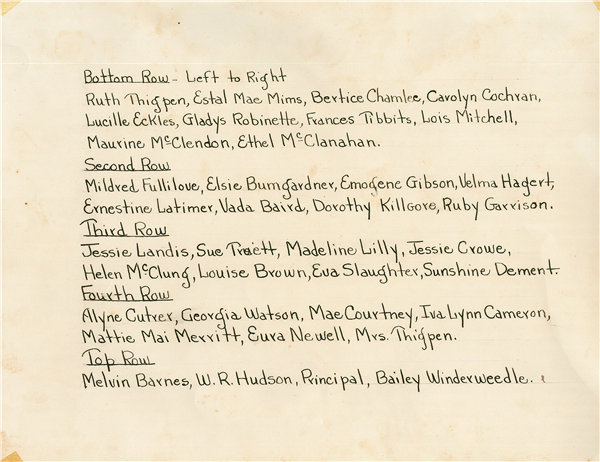 Bottom Row - Left to Right
Ruth Thigpen, Estal Mae Mims, Bertice Chamlee, Carolyn Cochran,
Lucille Eckles, Gladys Robinette, Frances Tibbits, Lois Mitchell,
Maurine McClendon, Ethel McClanahan.
Second Row
Mildred Fullilove, Elsie Bumgardner, Emogene Gibson, Velma Hagert,
Ernestine Latimer, Vada Baird, Dorothy Killgore, Ruby Garrison.
Third Row
Jessie Landis, Sue Madeline Lilly, Jessie Crowe,
Helen McClung, Louise Brown, Eva Slaughter, Sunshine Dement.
Fourth Row
Alyne Cutrer, Georgia Watson, Mae Courtney, Iva Lynn Cameron,
Mattie Mai Merritt, Eura Newell, Mrs. Thigpen.
Top Row
Melvin Barnes, W.R. Hudson, Principal, Bailey Winderweedle.